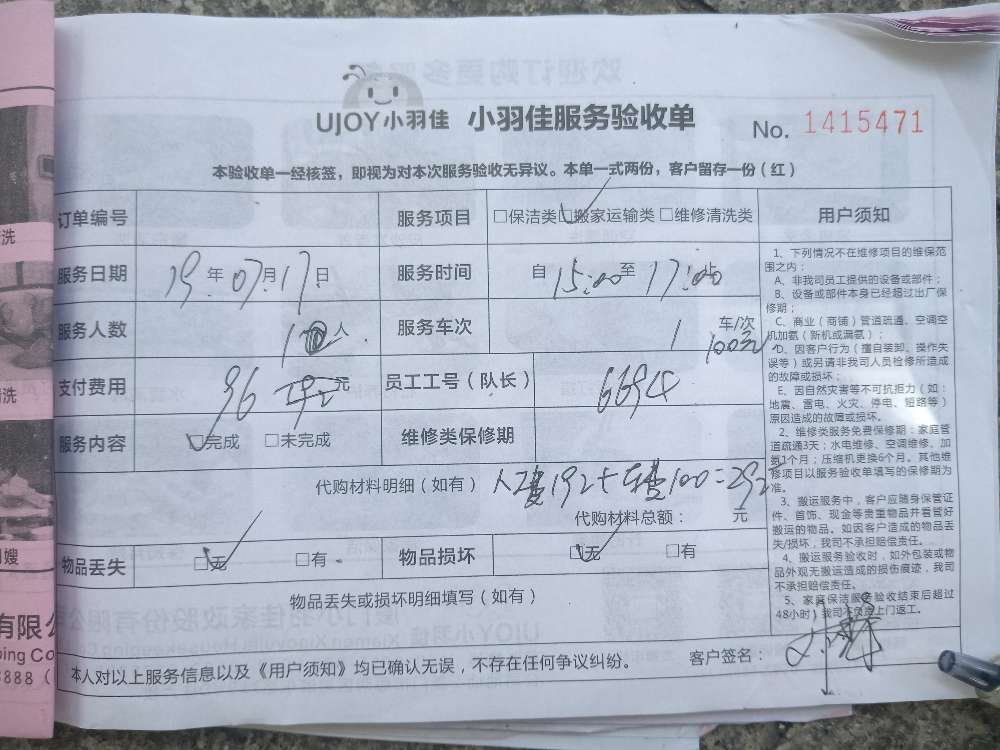 UJOY小羽佳 小羽佳服务验收单 No. 1415471
本验收单一经核签，即视为对本次服务验收无异议。本单一式两份，客户留存一份（红）
订单编号
服务项目 □保洁类 □搬家运输类 □维修清洗类
用户须知
服务日期 19年07月17日
服务时间 自15:00至17:00止
服务人数 1 人
服务车次 1 车/次 100元
支付费用 96 元
员工工号（队长） 6694
服务内容 □完成 □未完成
维修类保修期
代购材料明细（如有） 人工费192+车费100=292
代购材料总额： 元
物品丢失 □无 □有
物品损坏 □无 □有
物品丢失或损坏明细填写（如有）
本人对以上服务信息以及《用户须知》均已确认无误，不存在任何争议纠纷。
客户签名：
1、下列情况不在维修项目的维保范
围之内：
A、非我司员工提供的设备或部件；
B、设备或部件本身已经超过出厂保
修期；
C、商业（商铺）管道疏通、空调空
机加氨（新机或漏氨）；
D、因客户行为（擅自装卸、操作失
误等）或另请非我司人员检修所造成
的故障或损坏；
E、因自然灾害等不可抗拒力（如：
地震、雷电、火灾、停电、短路等）
原因造成的故障或损坏。
2、维修类服务免费保修期：家庭管
道疏通3天；水电维修、空调维修、加
氨1个月；压缩机更换6个月。其他维
修项目以服务验收单填写的保修期为
准。
3、搬运服务中，客户应随身保管证
件、首饰、现金等贵重物品并看管好
搬运的物品。如因客户造成的物品丢
失/损坏，我司不承担赔偿责任。
4、搬运服务验收时，如外包装或物
品外观无搬运造成的损伤痕迹，我司
不承担赔偿责任。
5、家庭保洁服务验收结束后超过
48小时）我司不负责上门返工。
洗
清洗
嫂
有限公
ping Co
8888（